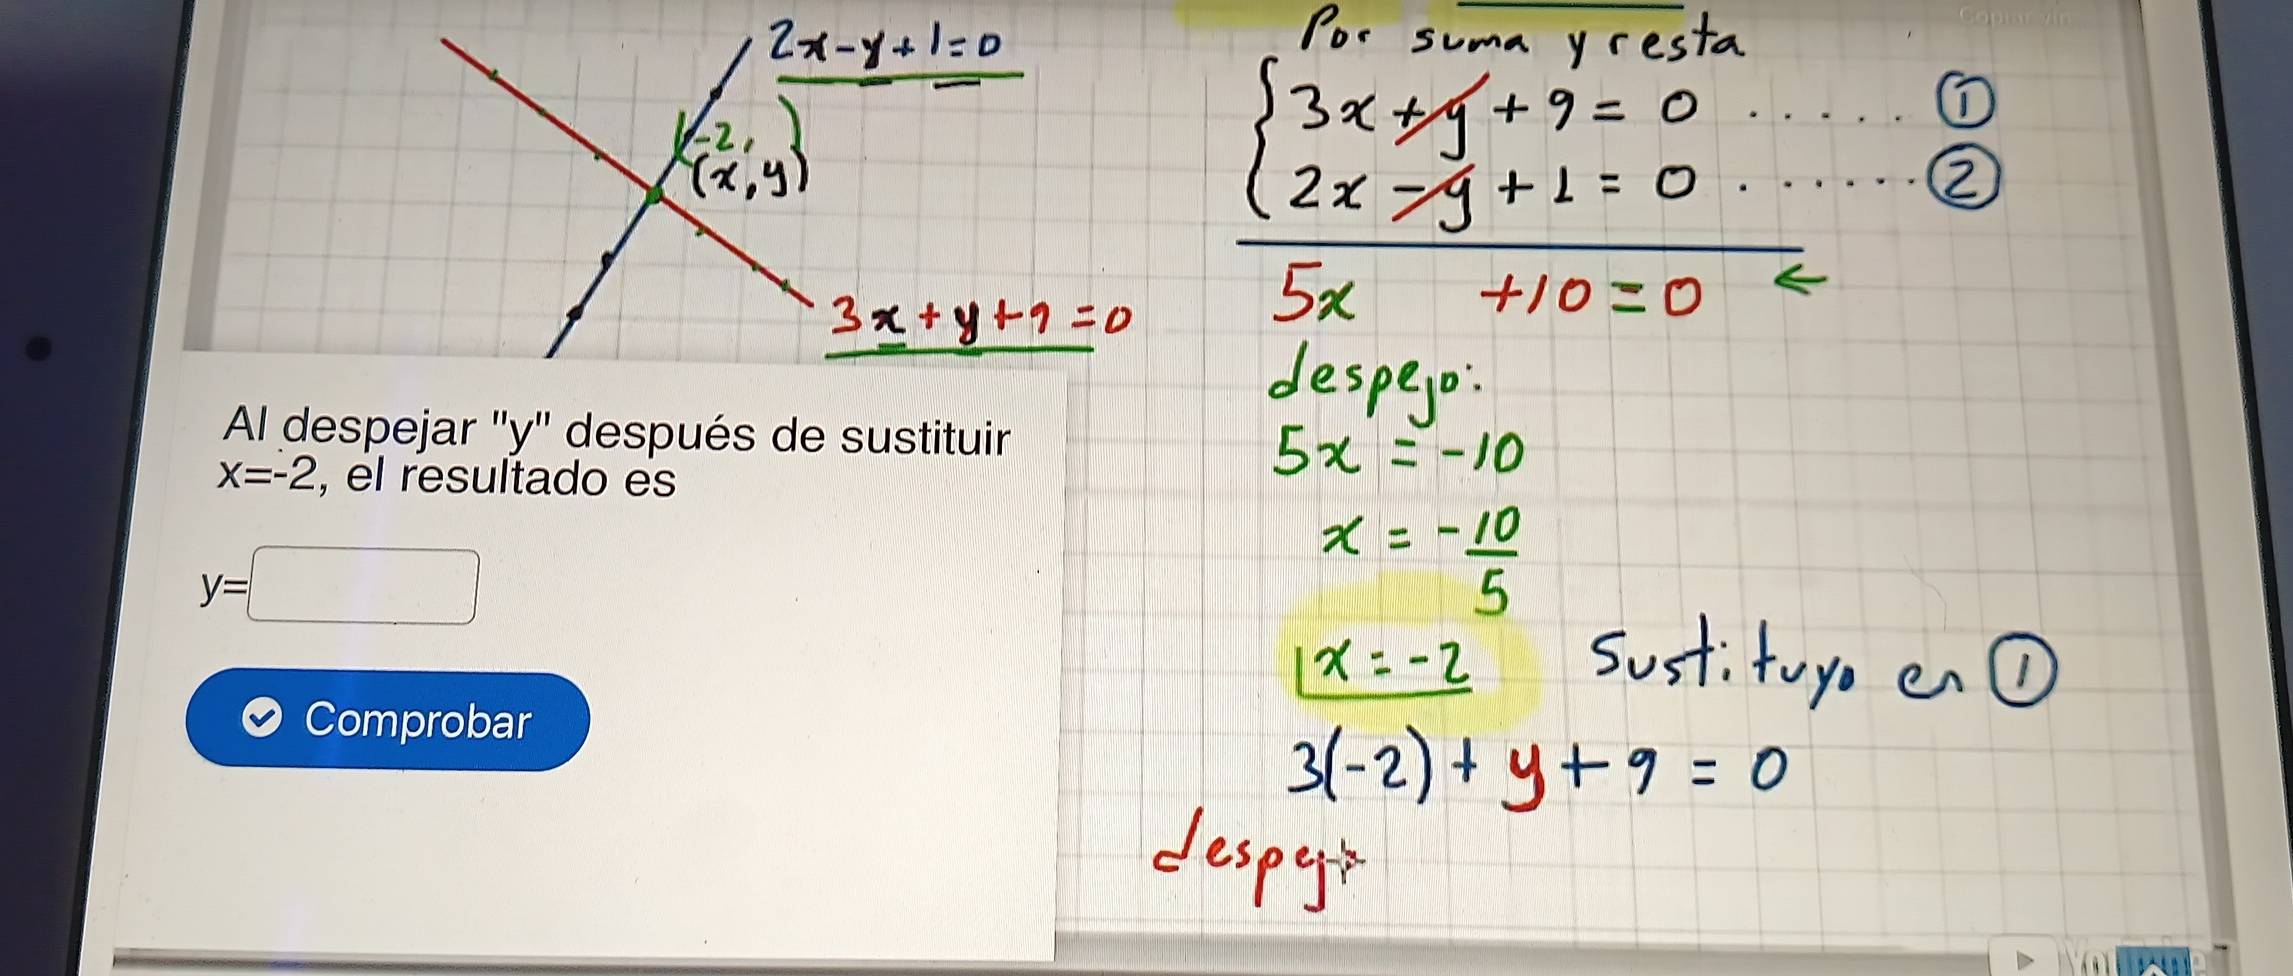 2x-y+1=0
(-2, )
(x,y)
3x+y+9=0
Al despejar "y" después de sustituir
x=-2, el resultado es
y=
Comprobar
Por suma y resta
3x+y+9=0 ..... ①
2x-y+1=0 ...... ②
5x +10=0 ←
despejo:
5x = -10
x = -10
5
x = -2 Sustituyo en ①
3(-2) + y + 9 = 0
despejo